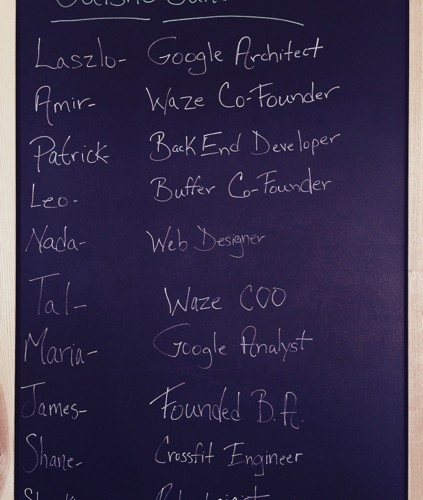 Laszlo- Google Architect
Amir- Waze Co-Founder
Patrick- BackEnd Developer
Leo- Buffer Co-Founder
Nada- Web Designer
Tal- Waze COO
Maria- Google Analyst
James- Founded B.A.
Shane- Crossfit Engineer